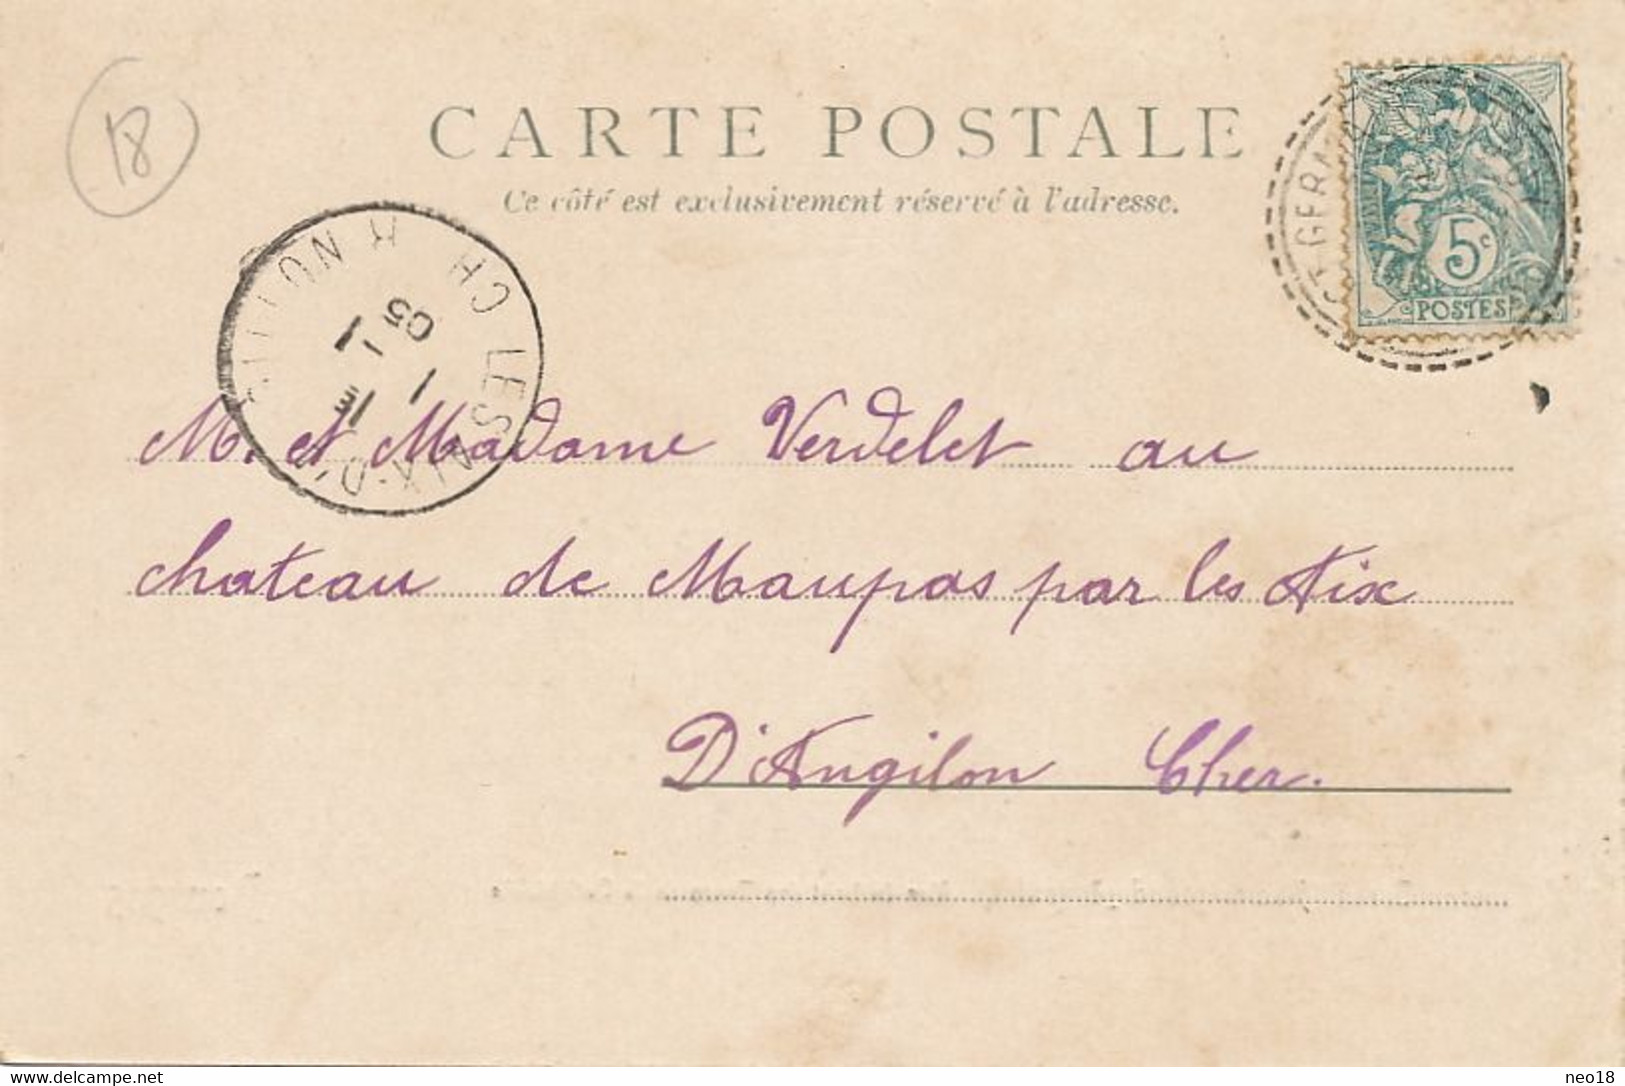 18
CARTE POSTALE
Ce côté est exclusivement réservé à l'adresse.
ST GERMAIN
5c
POSTES
LES AIX-D'ANGILLON CHER
1
1
05
M. et Madame Verdelet au
chateau de Maupas par les Aix
D'Angilon Cher.
www.delcampe.net
neo18